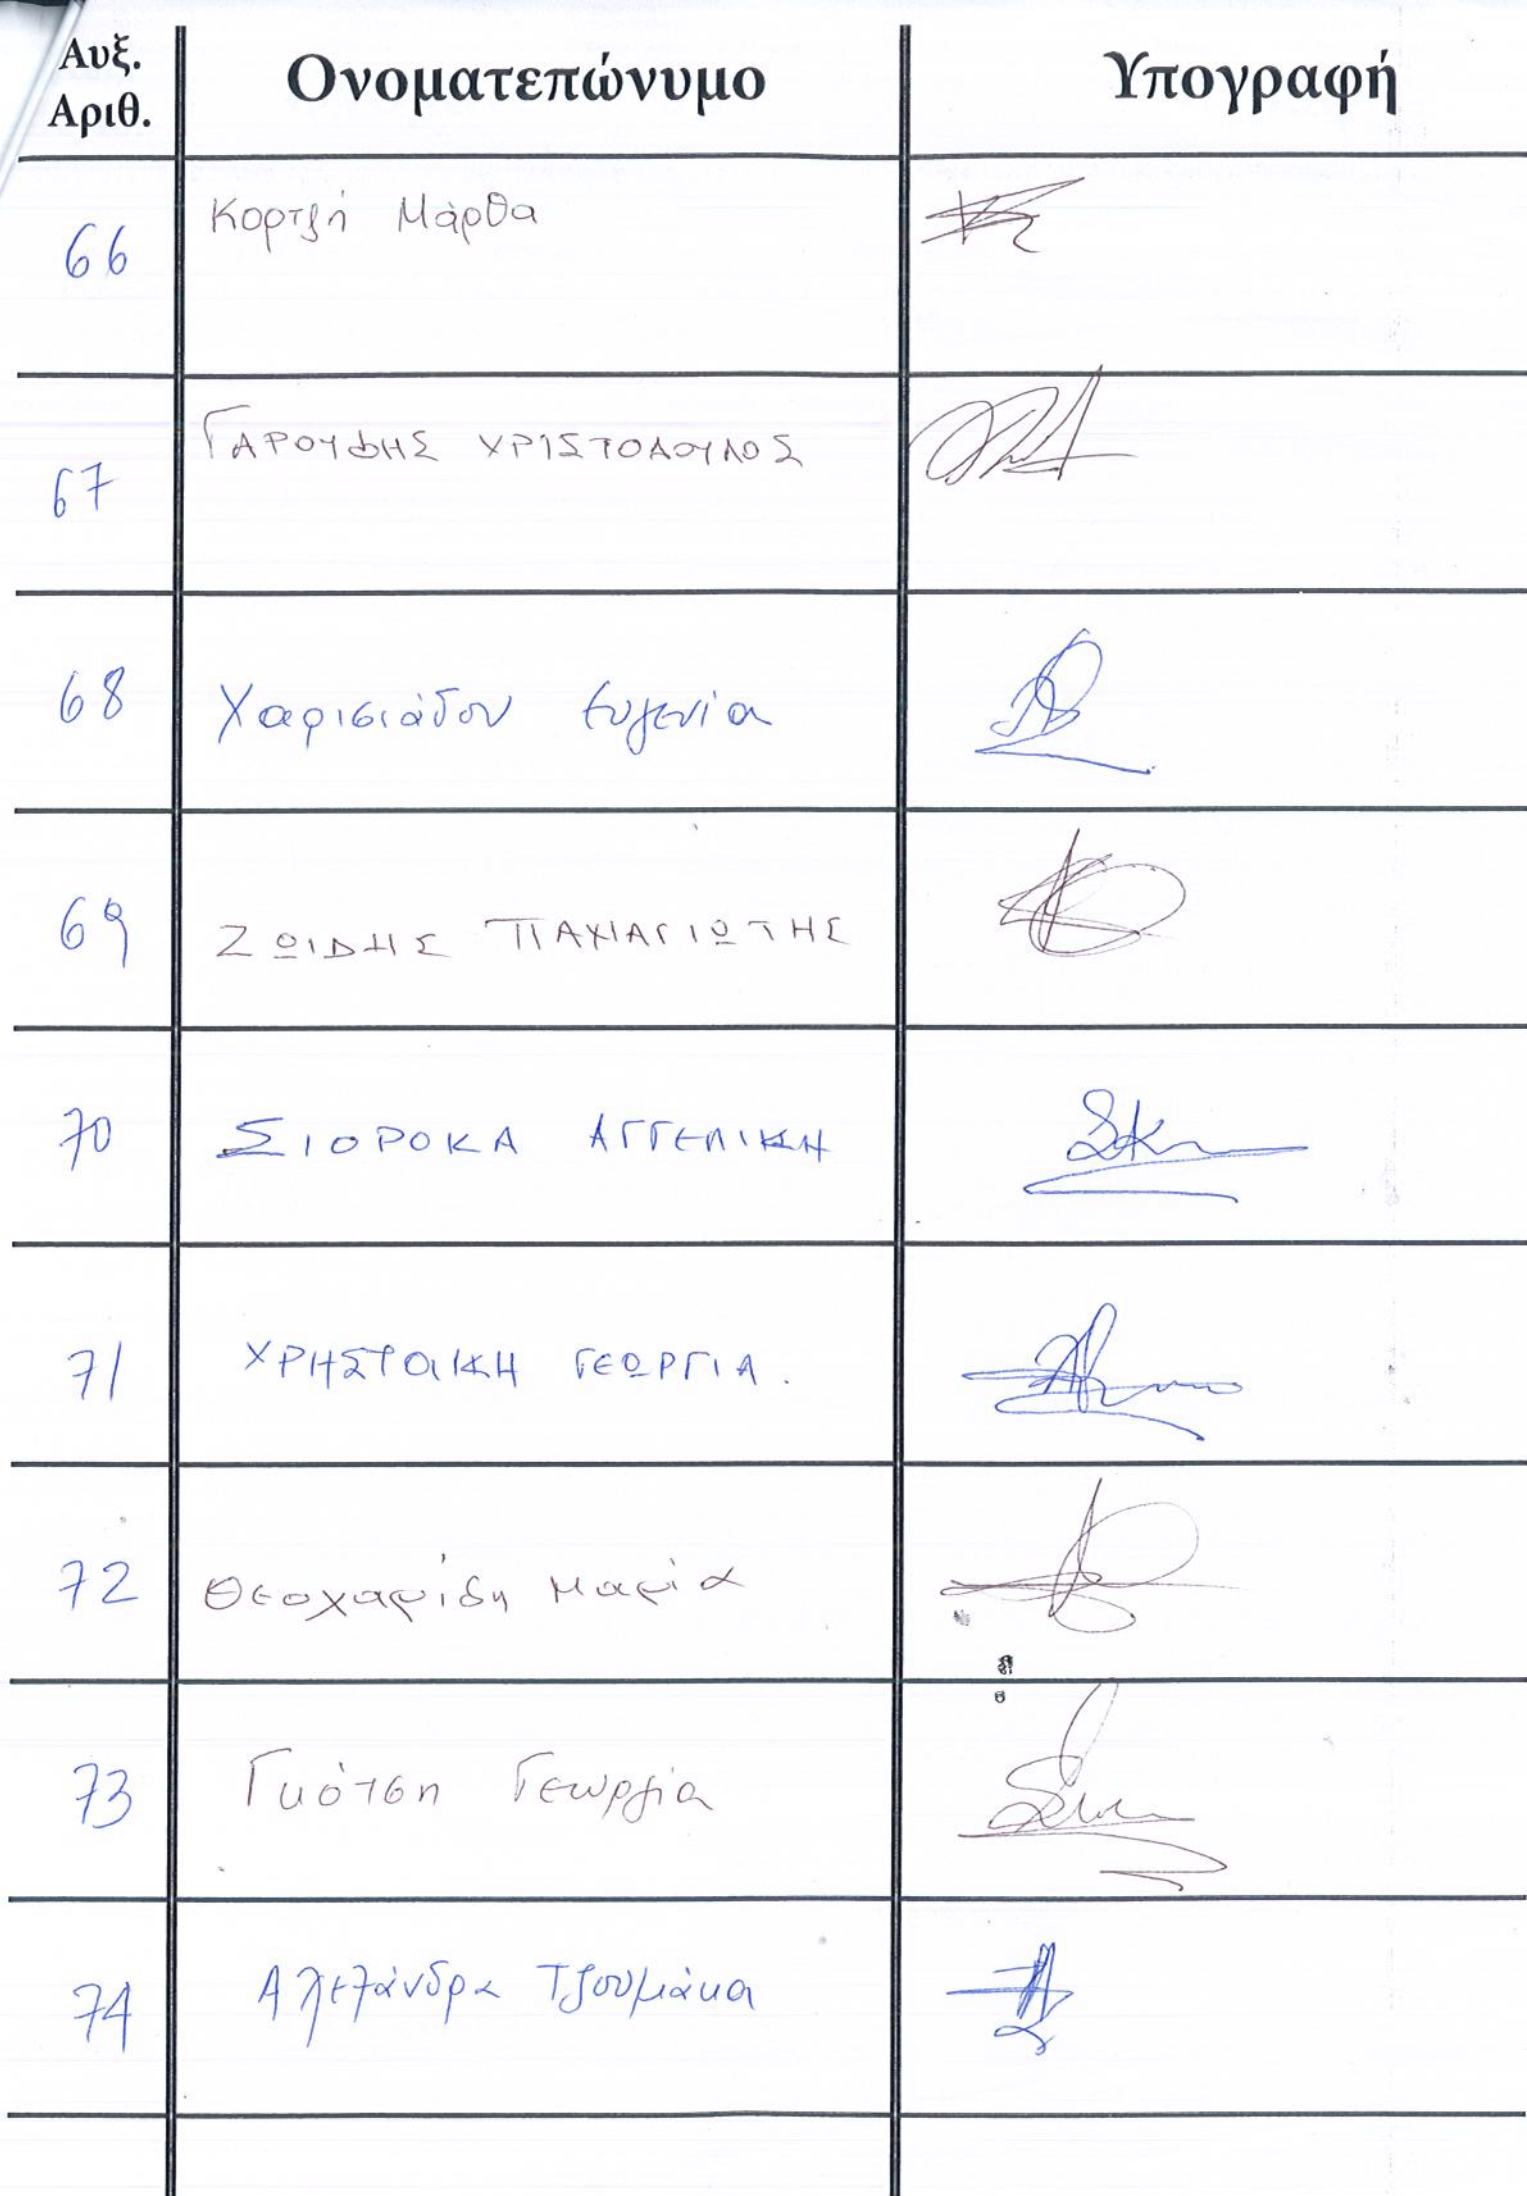 Αυξ. Αριθ. Ονοματεπώνυμο Υπογραφή
66 Κορτζή Μάρθα
67 ΓΑΡΟΥΦΗΣ ΧΡΙΣΤΟΔΟΥΛΟΣ
68 Χαρισιάδου Ευγενία
69 ΖΩΙΔΗΣ ΠΑΝΑΓΙΩΤΗΣ
70 ΣΙΟΡΟΚΑ ΑΓΓΕΛΙΚΗ
71 ΧΡΗΣΤΑΙΚΗ ΓΕΩΡΓΙΑ.
72 Θεοχαρίδη Μαρία
73 Γκότση Γεωργία
74 Αλεξάνδρα Τζουμάκα